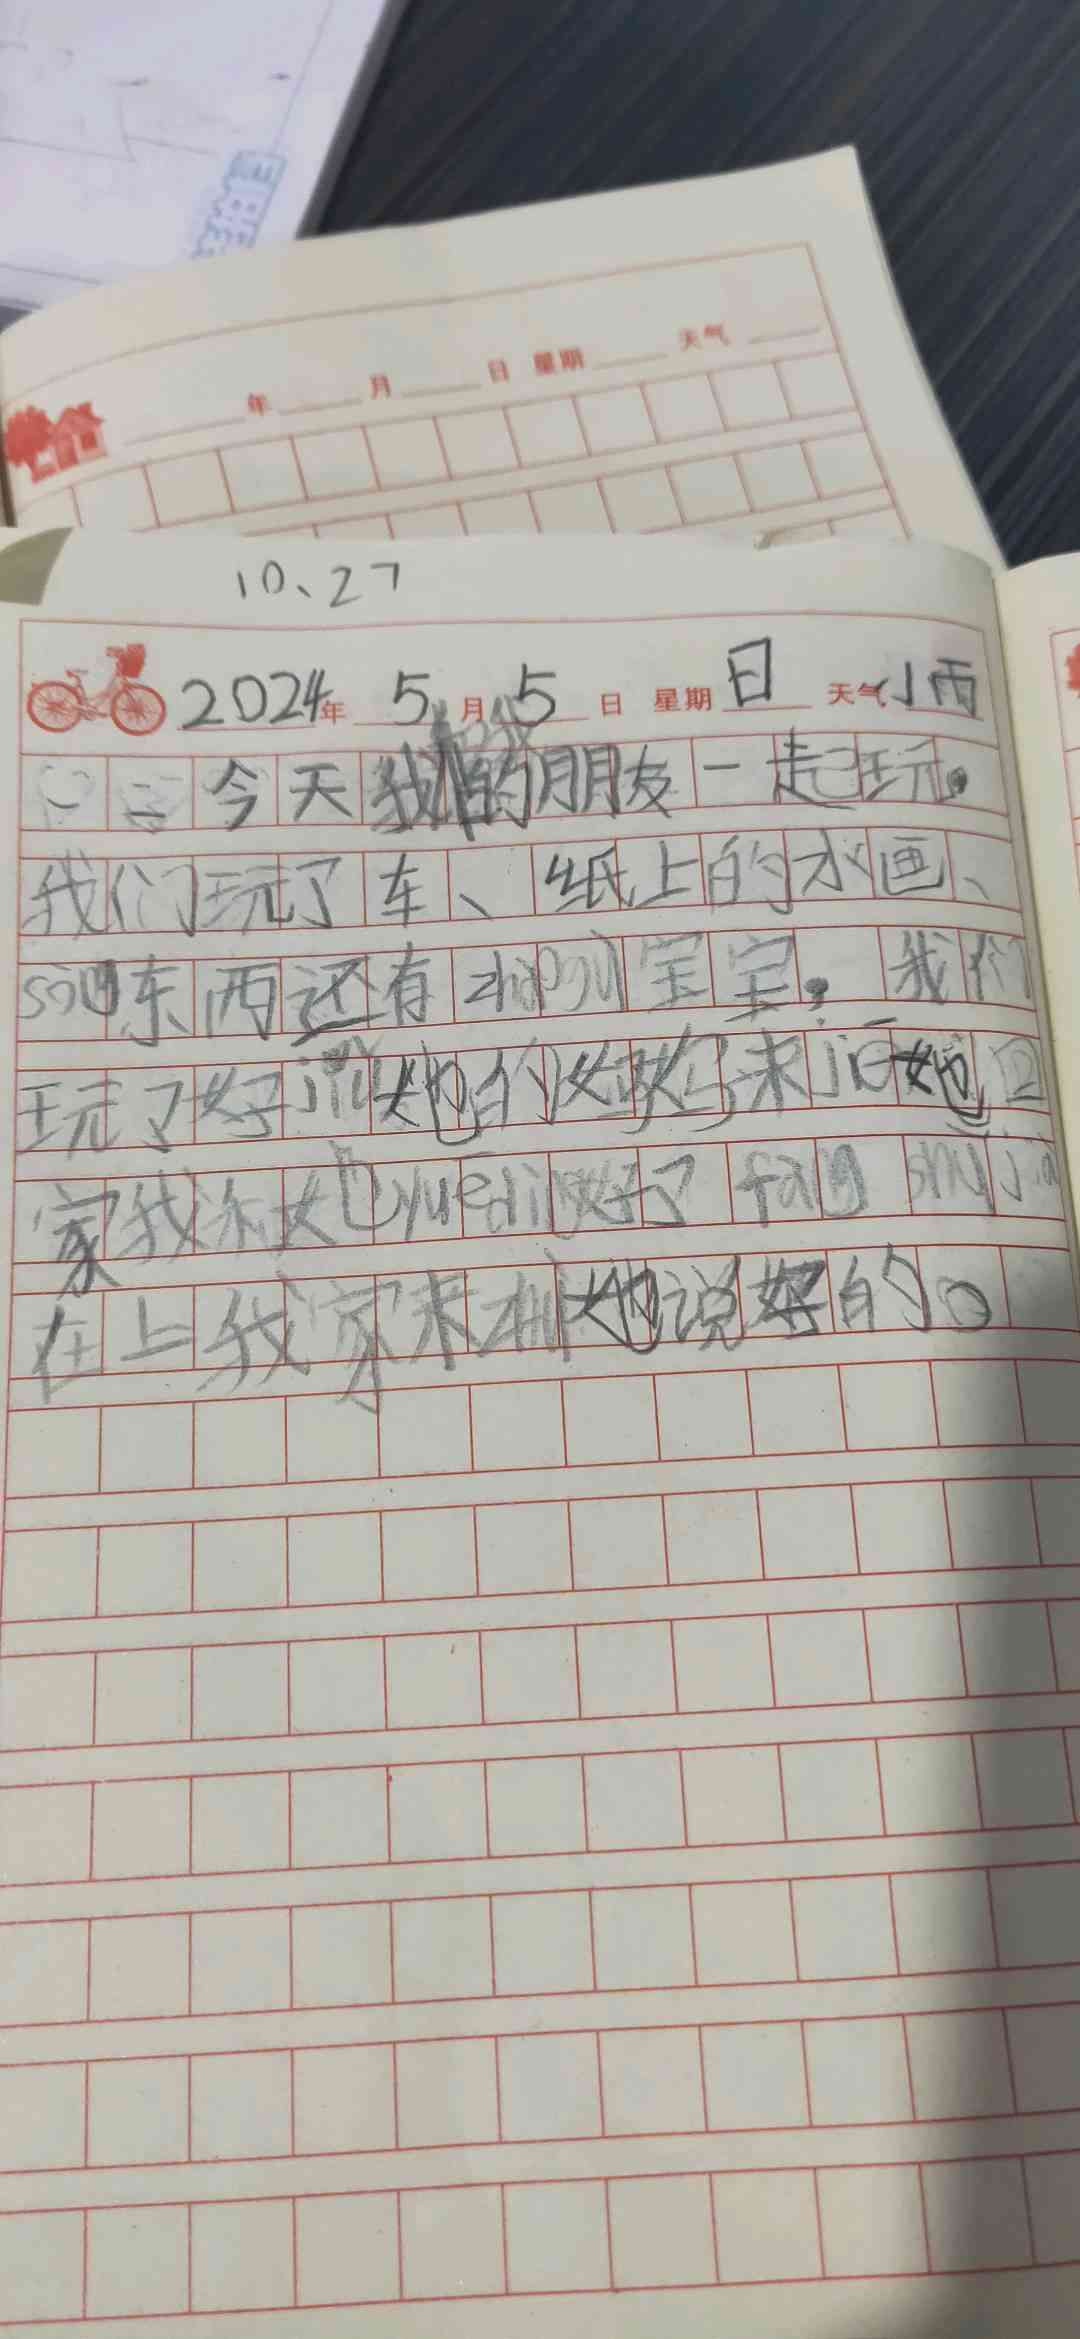 年 月 日 星期 天气
10、27
2024年 5月5日 星期日 天气小雨
今天我的朋友一起玩。
我们玩了车、纸上的水画、
东西还有 宝宝。我们
玩了好 她的妈妈来 她回
家我 她 yuē 好了 fang shu jia
在上我家来 她说好的。